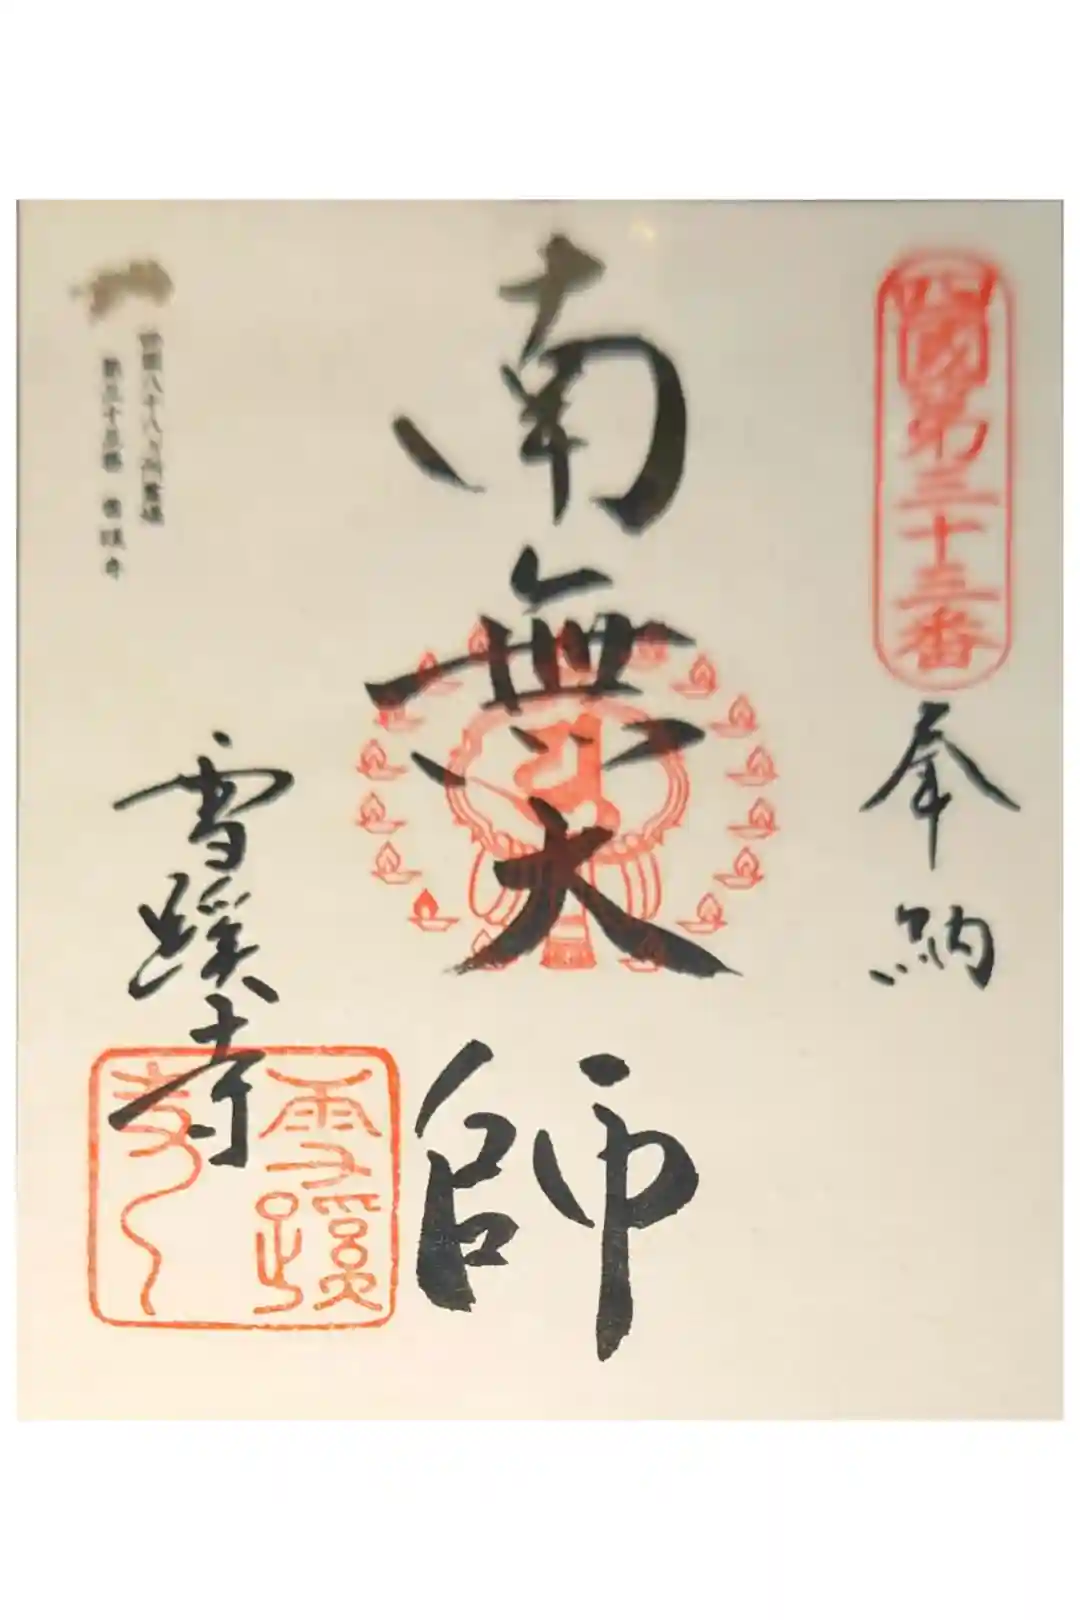 四國第三十三番
奉納
南無大師
雪蹊寺
雪蹊
四国八十八ヶ所霊場
第三十三番 雪蹊寺